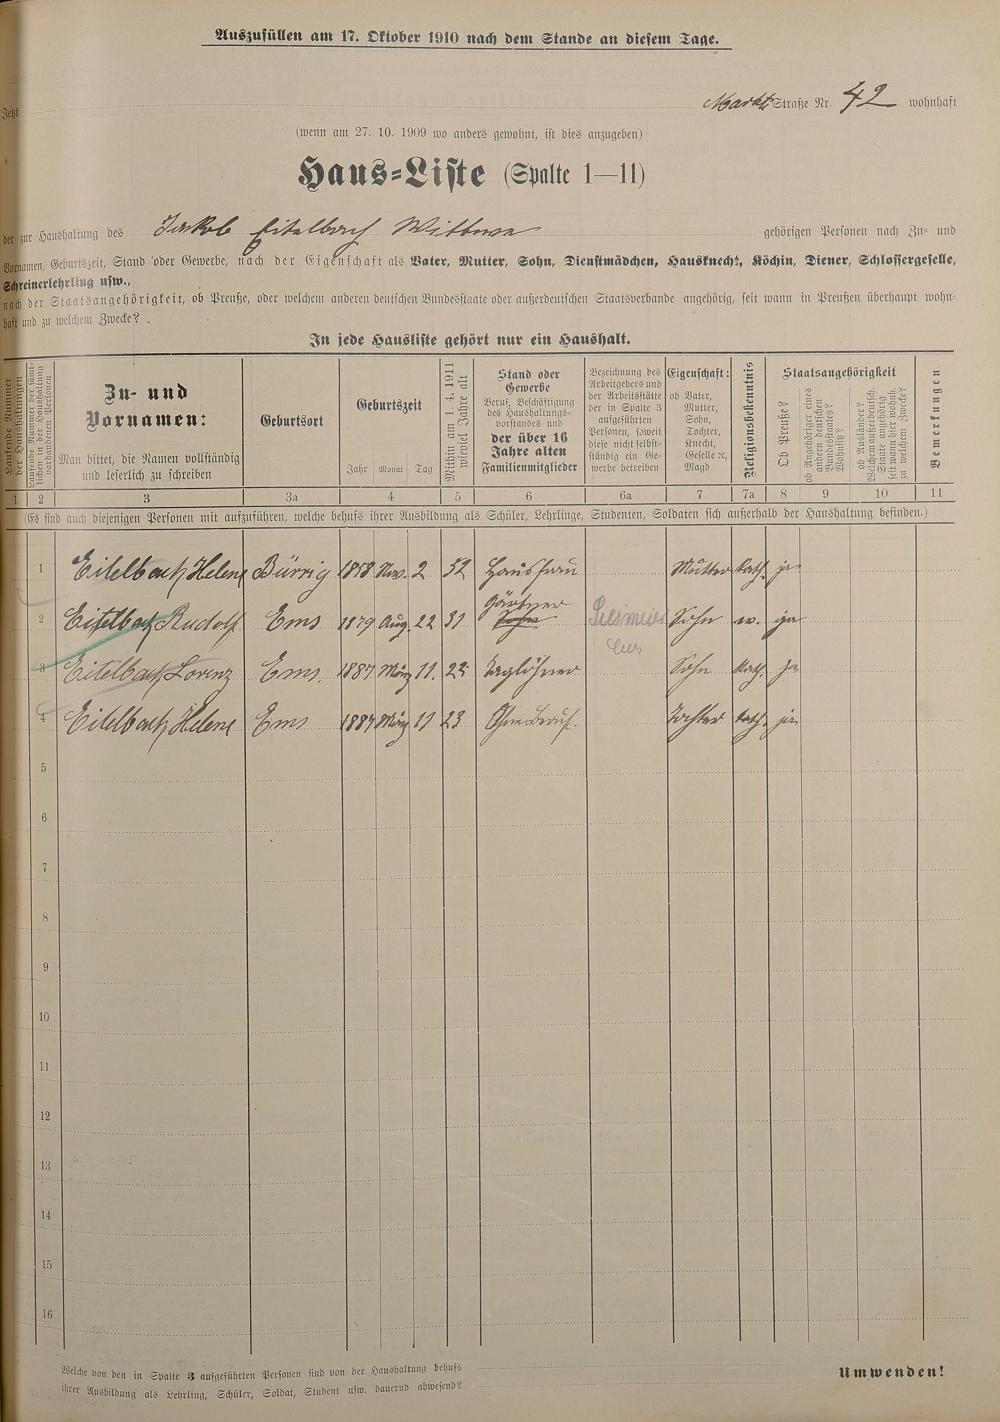 Auszufüllen am 17. Oktober 1910 nach dem Stande an diesem Tage.
Jetzt Markt Straße Nr. 42 wohnhaft
(wenn am 27. 10. 1909 wo anders gewohnt, ist dies anzugeben)
Haus-Liste (Spalte 1—11)
der zur Haushaltung des Jakob Eitelbach Wittwe gehörigen Personen nach Zu- und
Vornamen, Geburtszeit, Stand oder Gewerbe, nach der Eigenschaft als Vater, Mutter, Sohn, Dienstmädchen, Hausknecht, Köchin, Diener, Schlossergeselle,
Schreinerlehrling usw.,
nach der Staatsangehörigkeit, ob Preuße, oder welchem anderen deutschen Bundesstaate oder außerdeutschen Staatsverbande angehörig, seit wann in Preußen überhaupt wohn-
haft und zu welchem Zwecke? .
In jede Hausliste gehört nur ein Haushalt.
Laufende Nummer
der Haushaltungen
Laufende Nummer der sämt-
lichen in der Haushaltung
vorhandenen Personen
Zu- und
Vornamen:
Man bittet, die Namen vollständig
und leserlich zu schreiben
Geburtsort
Geburtszeit
Jahr Monat Tag
Mithin am 1. 4. 1911
wieviel Jahre alt
Stand oder
Gewerbe
Beruf, Beschäftigung
des Haushaltungs-
vorstandes und
der über 16
Jahre alten
Familienmitglieder
Bezeichnung des
Arbeitgebers und
der Arbeitsstätte
der in Spalte 3
aufgeführten
Personen, soweit
diese nicht selbst-
ständig ein Ge-
werbe betreiben
Eigenschaft:
ob Vater,
Mutter,
Sohn,
Tochter,
Knecht,
Geselle ꝛc,
Magd
Religionsbekenntnis
Staatsangehörigkeit
Ob Preuße?
ob Angehöriger eines
andern deutschen
Bundesstaates?
Wohnsitz?
ob Ausländer?
Welchem außerdeutsch.
Staate angehörig
seit wann hier wohnh.
zu welchem Zwecke?
Bemerkungen
1 2 3 3a 4 5 6 6a 7 7a 8 9 10 11
(Es sind auch diejenigen Personen mit aufzuführen, welche behufs ihrer Ausbildung als Schüler, Lehrlinge, Studenten, Soldaten sich außerhalb der Haushaltung befinden.)
1 Eitelbach Helene Bürrig 1858 Nov. 2 52 Hausfrau Mutter Kath. ja
Gärtner
2 Eitelbach Rudolf Ems 1879 Aug. 22 31 Sohn Sohn ev. ja
3 Eitelbach Lorenz Ems. 1887 März 11. 23 Taglöhner Sohn Kath. ja
4 Eitelbach Helene Ems 1887 März 11 23 Ohne Beruf. Tochter Kath. ja
5
6
7
8
9
10
11
12
13
14
15
16
Welche von den in Spalte 3 aufgeführten Personen sind von der Haushaltung behufs
ihrer Ausbildung als Lehrling, Schüler, Soldat, Student usw. dauernd abwesend?
Umwenden!